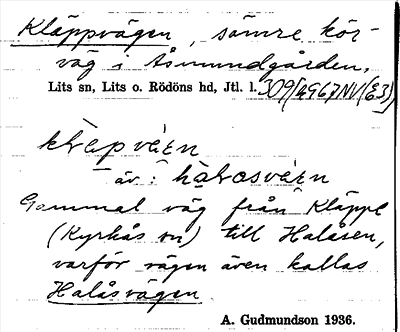 Kläppvägen, sämre kör-
väg i Åsmundgården.
Lits sn, Lits o. Rödöns hd, Jtl. l. 309/4967NV(E3)
av:
Gammal väg från Kläppe
(Kyrkås sn) till Halåsen,
varför vägen även kallas
Halåsvägen.
A. Gudmundson 1936.